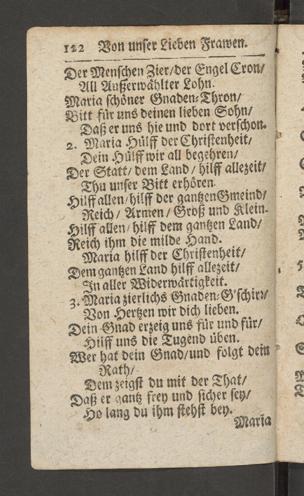 122 Von unser Lieben Frawen.
Der Menschen Zier/der Engel Cron/
All Außerwählter Lohn.
Maria schöner Gnaden-Thron/
Bitt für uns deinen lieben Sohn/
Daß er uns hie und dort verschon.
2. Maria Hülff der Christenheit/
Dein Hülff wir all begehren/
Der Statt/ dem Land/ hilff allezeit/
Thu unser Bitt erhören.
Hilff allen/ hilff der gantzen Gmeind/
Reich/ Armen/ Groß und Klein.
Hilff allen/ hilff dem gantzen Land/
Reich ihm die milde Hand.
Maria hilff der Christenheit/
Dem gantzen Land hilff allezeit/
In aller Widerwärtigkeit.
3. Maria zierlichs Gnaden-G'schirr/
Von Hertzen wir dich lieben.
Dein Gnad erzeig uns für und für/
Hilff uns die Tugend üben.
Wer hat dein Gnad/und folgt dein
Rath/
Dem zeigst du mit der That/
Daß er gantz frey und sicher sey/
So lang du ihm stehst bey.
Maria